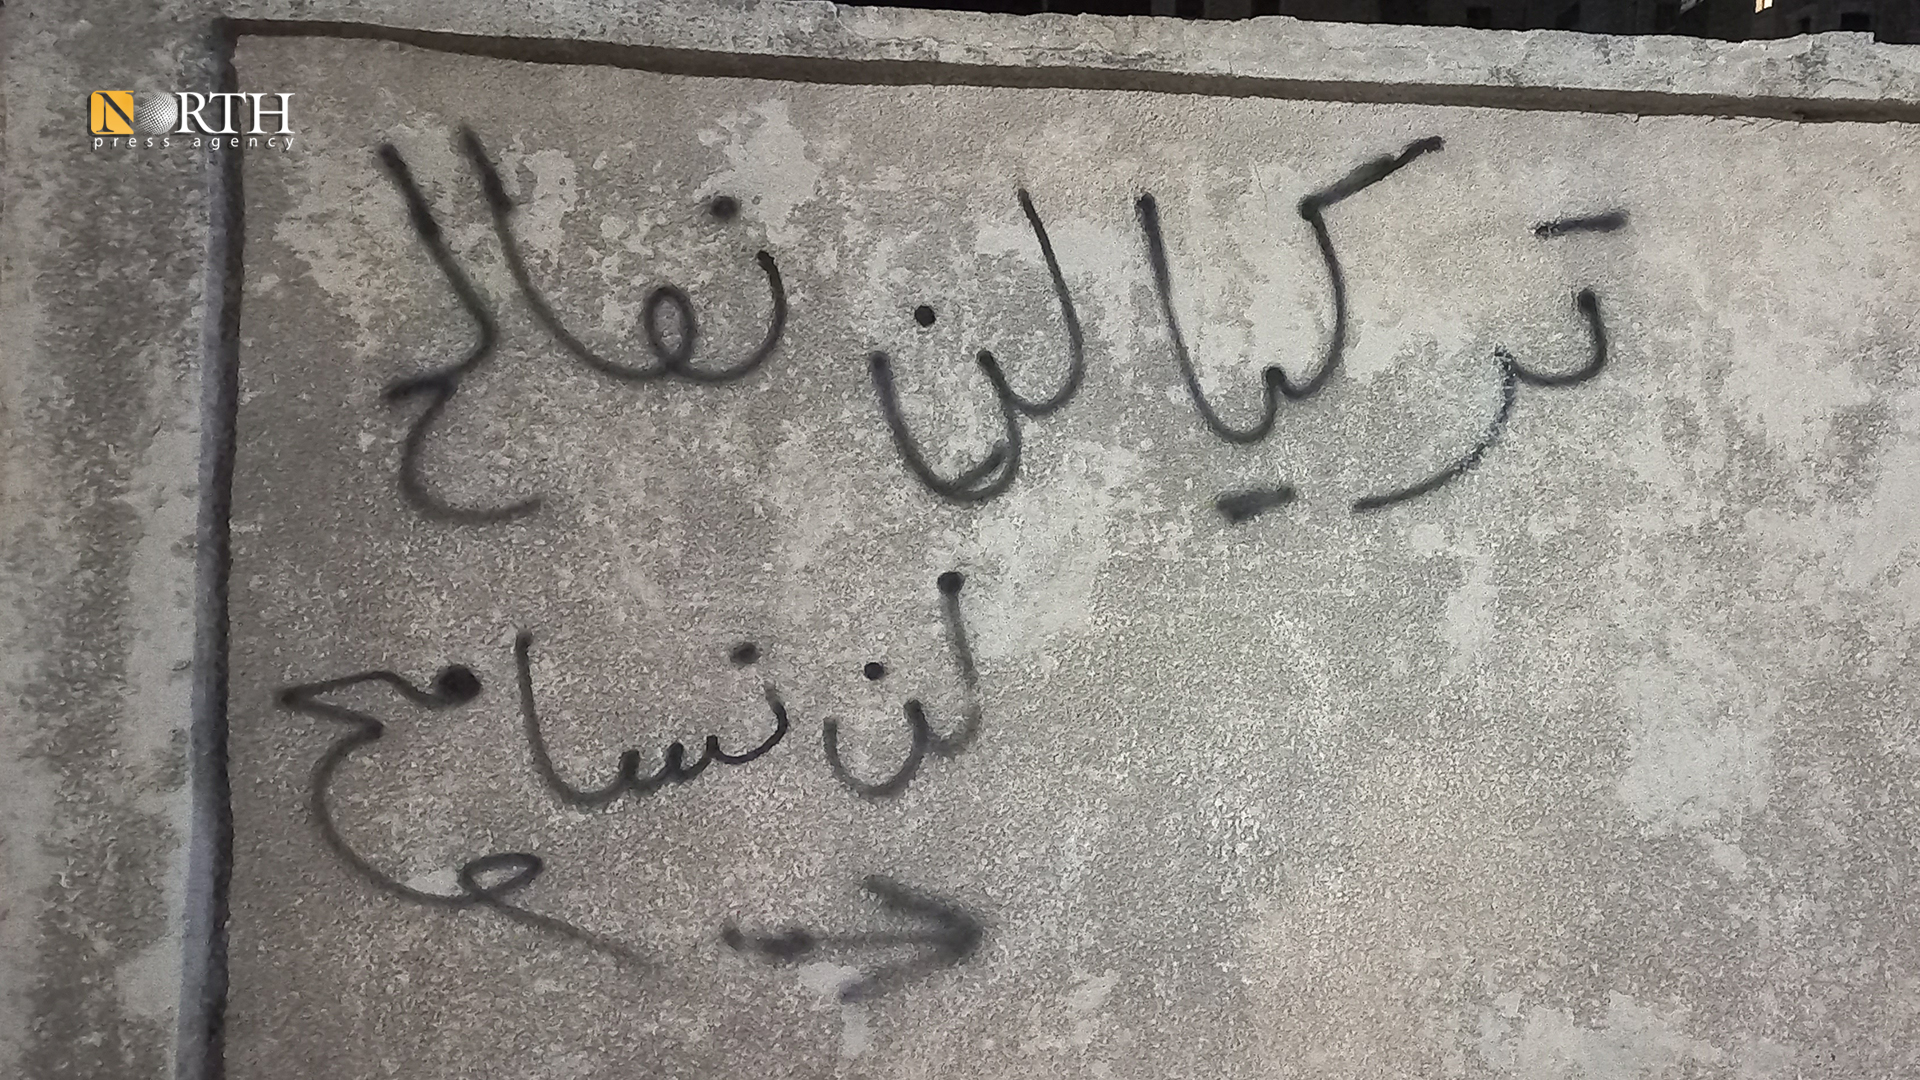 NORTH
press agency
تركيا لن نصالح
لن نسامح